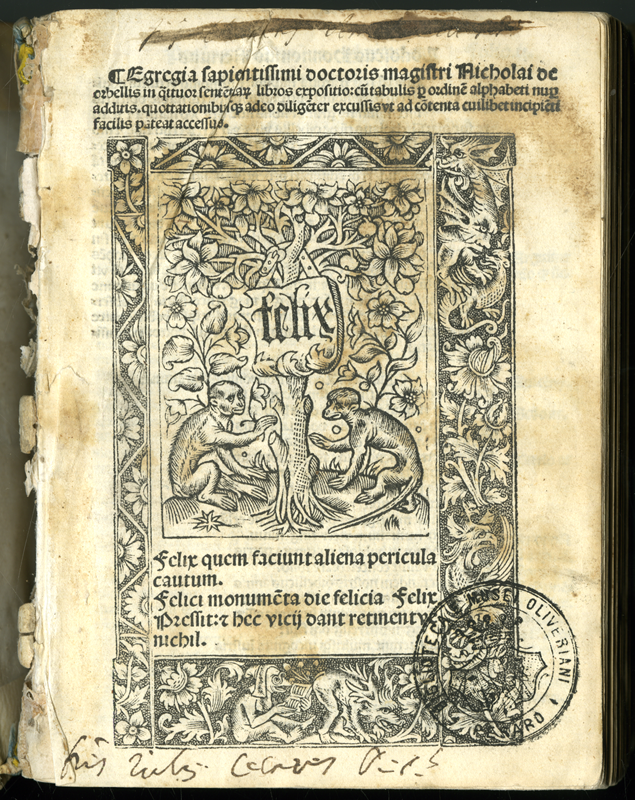 ¶Egregia sapientissimi doctoris magistri Nicholai de
orbellis in q̃ttuor sentẽtiaꝝ libros expositio: cũ tabulis ꝑ ordinẽ alphabeti nuꝑ
additis. quottationibusqꝫ adeo diligẽter excussis vt ad cõtenta cuilibet incipiẽti
facilis pateat accessus.
felix
Felix quem faciunt aliena pericula
cautum.
Felici monumẽta die felicia Felix
Pressit: ⁊ hec vicij dant retinentve
nichil.
BIBLIOTECA E MUSEI OLIVERIANI
PESARO